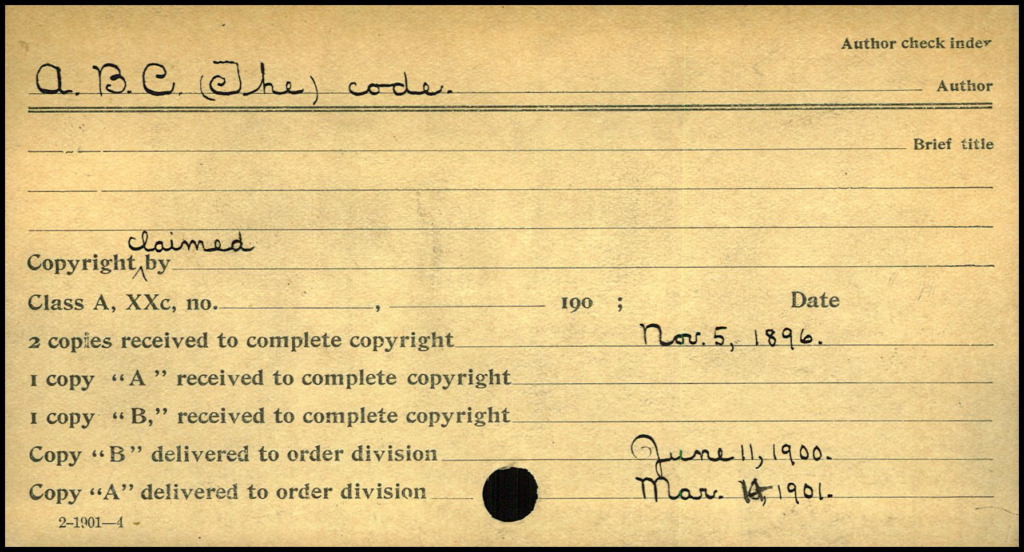 Author check index
A. B. C. (The) code. Author
Brief title
claimed
Copyright ^ by
Class A, XXc, no. , 190 ; Date
2 copies received to complete copyright Nov. 5, 1896.
1 copy “A ” received to complete copyright
1 copy “B,” received to complete copyright
Copy “B” delivered to order division June 11, 1900.
Copy “A” delivered to order division Mar. 14, 1901.
2–1901—4